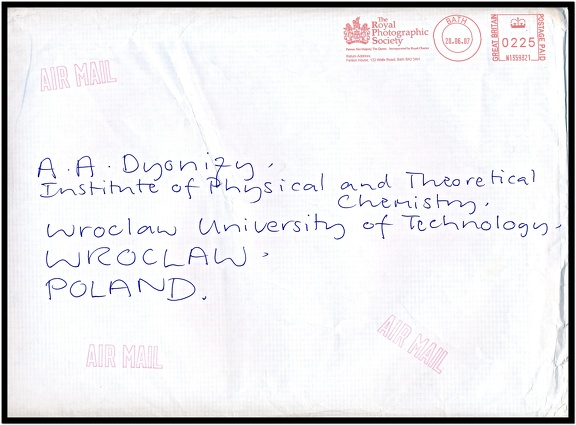 The
Royal
Photographic
Society
Patron: Her Majesty The Queen. Incorporated by Royal Charter
Return Address:
Fenton House, 122 Wells Road, Bath BA2 3AH
BATH
20.06.07
GREAT BRITAIN
0225
N1959321
POSTAGE PAID
AIR MAIL
A.A. Dyonizy,
Institute of Physical and Theoretical
Chemistry,
Wroclaw University of Technology,
WROCLAW,
POLAND.
AIR MAIL
AIR MAIL